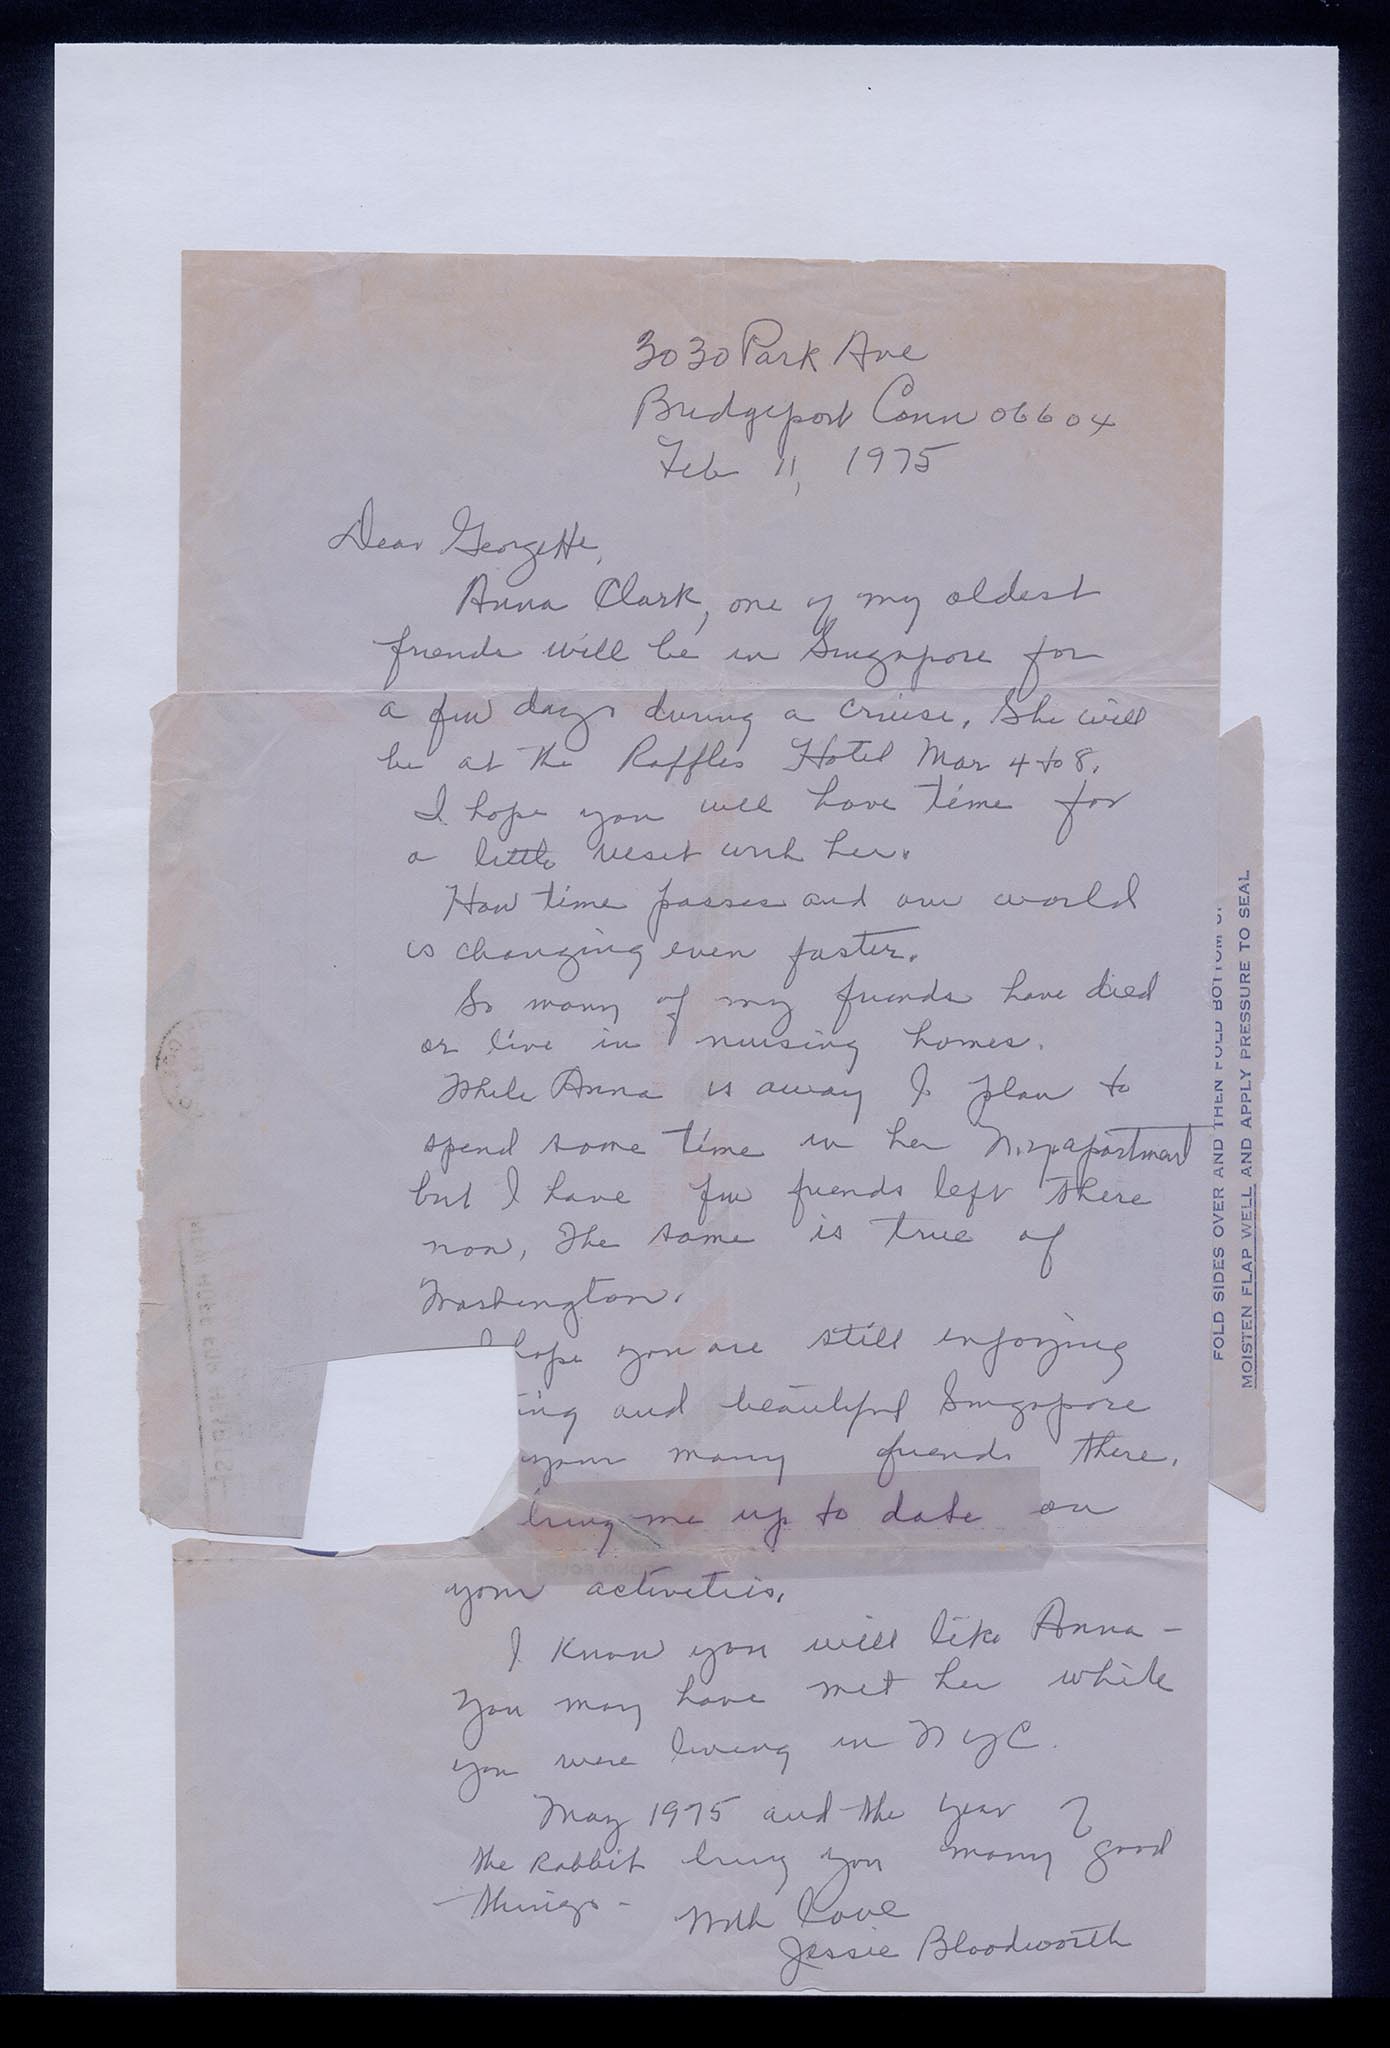 3030 Park Ave
Bridgeport Conn 06604
Feb 11, 1975
Dear Georgette,
Anna Clark, one of my oldest
friends will be in Singapore for
a few days during a cruise. She will
be at the Raffles Hotel Mar 4 to 8.
I hope you will have time for
a little visit with her.
How time passes and our world
is changing even faster.
So many of my friends have died
or live in nursing homes.
While Anna is away I plan to
spend some time in her N.Y. apartment
but I have few friends left there
now. The same is true of
Washington.
I hope you are still enjoying
ing and beautiful Singapore
your many friends there.
bring me up to date on
your activities.
I know you will like Anna –
You may have met her while
you were living in NYC.
May 1975 and the year of
the Rabbit bring you many good
things –
With Love
Jessie Bloodworth
FOLD SIDES OVER AND THEN FOLD BOTTOM
MOISTEN FLAP WELL AND APPLY PRESSURE TO SEAL